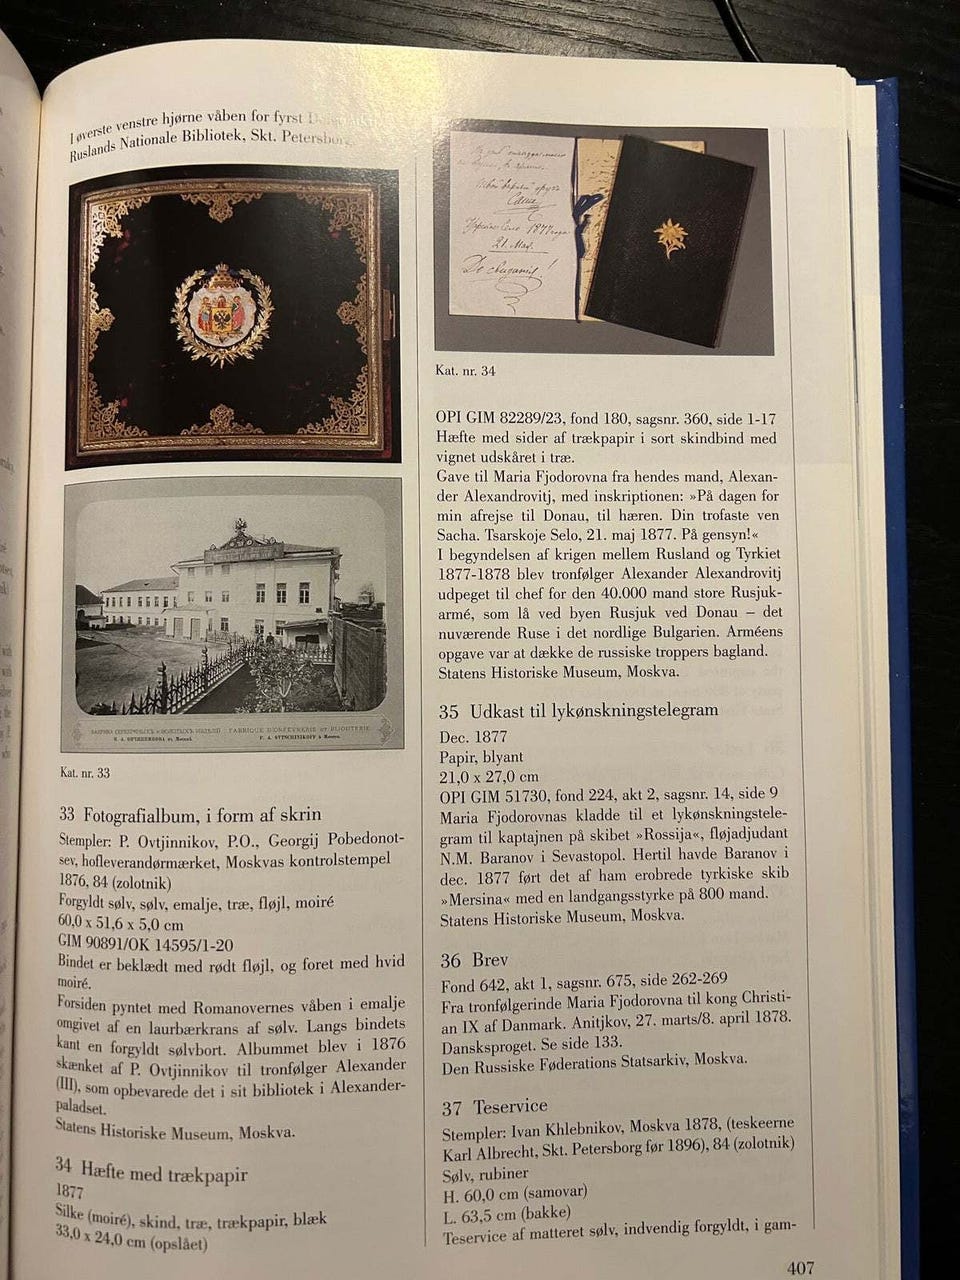 I øverste venstre hjørne våben for fyrst
Ruslands Nationale Bibliotek, Skt. Petersborg.
ФАБРИКА СЕРЕБРЯНЫХЪ И ЗОЛОТЫХЪ ИЗДѢЛІЙ
FABRIQUE D'ORFEVRERIE ET BIJOUTERIE
Kat. nr. 33
33 Fotografialbum, i form af skrin
Stempler: P. Ovtjinnikov, P.O., Georgij Pobedonot-
sev, hofleverandørmærket, Moskvas kontrolstempel
1876, 84 (zolotnik)
Forgyldt sølv, sølv, emalje, træ, fløjl, moiré
60,0 x 51,6 x 5,0 cm
GIM 90891/OK 14595/1-20
Bindet er beklædt med rødt fløjl, og foret med hvid
moiré.
Forsiden pyntet med Romanovernes våben i emalje
omgivet af en laurbærkrans af sølv. Langs bindets
kant en forgyldt sølvbort. Albummet blev i 1876
skænket af P. Ovtjinnikov til tronfølger Alexander
(III), som opbevarede det i sit bibliotek i Alexander-
paladset.
Statens Historiske Museum, Moskva.
34 Hæfte med trækpapir
1877
Silke (moiré), skind, træ, trækpapir, blæk
33,0 x 24,0 cm (opslået)
Саша
Царское Село 1877 года
21. Мая.
До свиданiя!
Kat. nr. 34
OPI GIM 82289/23, fond 180, sagsnr. 360, side 1-17
Hæfte med sider af trækpapir i sort skindbind med
vignet udskåret i træ.
Gave til Maria Fjodorovna fra hendes mand, Alexan-
der Alexandrovitj, med inskriptionen: »På dagen for
min afrejse til Donau, til hæren. Din trofaste ven
Sacha. Tsarskoje Selo, 21. maj 1877. På gensyn!«
I begyndelsen af krigen mellem Rusland og Tyrkiet
1877-1878 blev tronfølger Alexander Alexandrovitj
udpeget til chef for den 40.000 mand store Rusjuk-
armé, som lå ved byen Rusjuk ved Donau – det
nuværende Ruse i det nordlige Bulgarien. Arméens
opgave var at dække de russiske troppers bagland.
Statens Historiske Museum, Moskva.
35 Udkast til lykønskningstelegram
Dec. 1877
Papir, blyant
21,0 x 27,0 cm
OPI GIM 51730, fond 224, akt 2, sagsnr. 14, side 9
Maria Fjodorovnas kladde til et lykønskningstele-
gram til kaptajnen på skibet »Rossija«, fløjadjudant
N.M. Baranov i Sevastopol. Hertil havde Baranov i
dec. 1877 ført det af ham erobrede tyrkiske skib
»Mersina« med en landgangsstyrke på 800 mand.
Statens Historiske Museum, Moskva.
36 Brev
Fond 642, akt 1, sagsnr. 675, side 262-269
Fra tronfølgerinde Maria Fjodorovna til kong Christi-
an IX af Danmark. Anitjkov, 27. marts/8. april 1878.
Dansksproget. Se side 133.
Den Russiske Føderations Statsarkiv, Moskva.
37 Teservice
Stempler: Ivan Khlebnikov, Moskva 1878, (teskeerne
Karl Albrecht, Skt. Petersborg før 1896), 84 (zolotnik)
Sølv, rubiner
H. 60,0 cm (samovar)
L. 63,5 cm (bakke)
Teservice af matteret sølv, indvendig forgyldt, i gam-
407